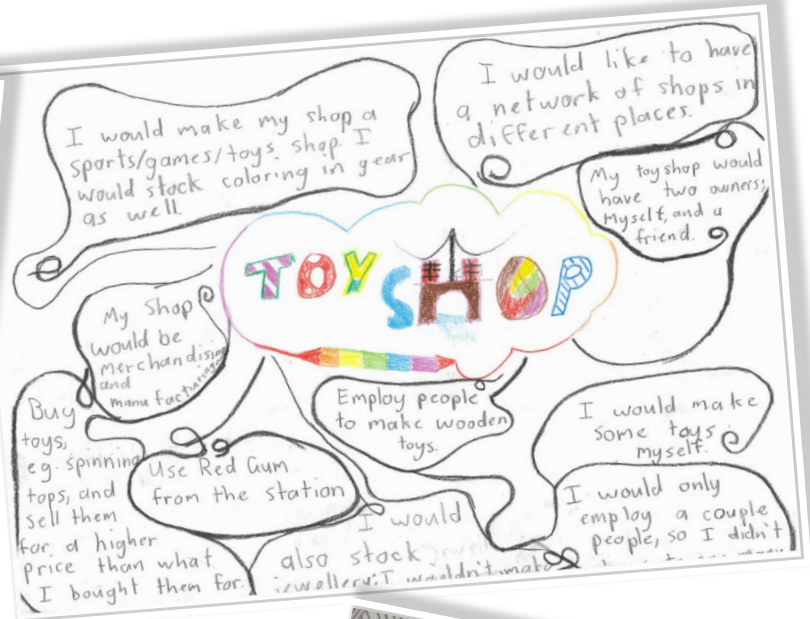 I would make my shop a
sports/games/toys shop. I
would stock coloring in gear
as well.
I would like to have
a network of shops in
different places.
My toyshop would
have two owners;
Myself, and a
friend.
TOY SHOP
My Shop
would be
merchandising
and
manufacturing.
Employ people
to make wooden
toys.
I would make
some toys
myself.
Buy
toys,
eg. spinning
tops, and
sell them
for a higher
price than what
I bought them for.
Use Red Gum
from the station
I would
also stock
jewellery; I wouldn't make
I would only
employ a couple
people, so I didn't